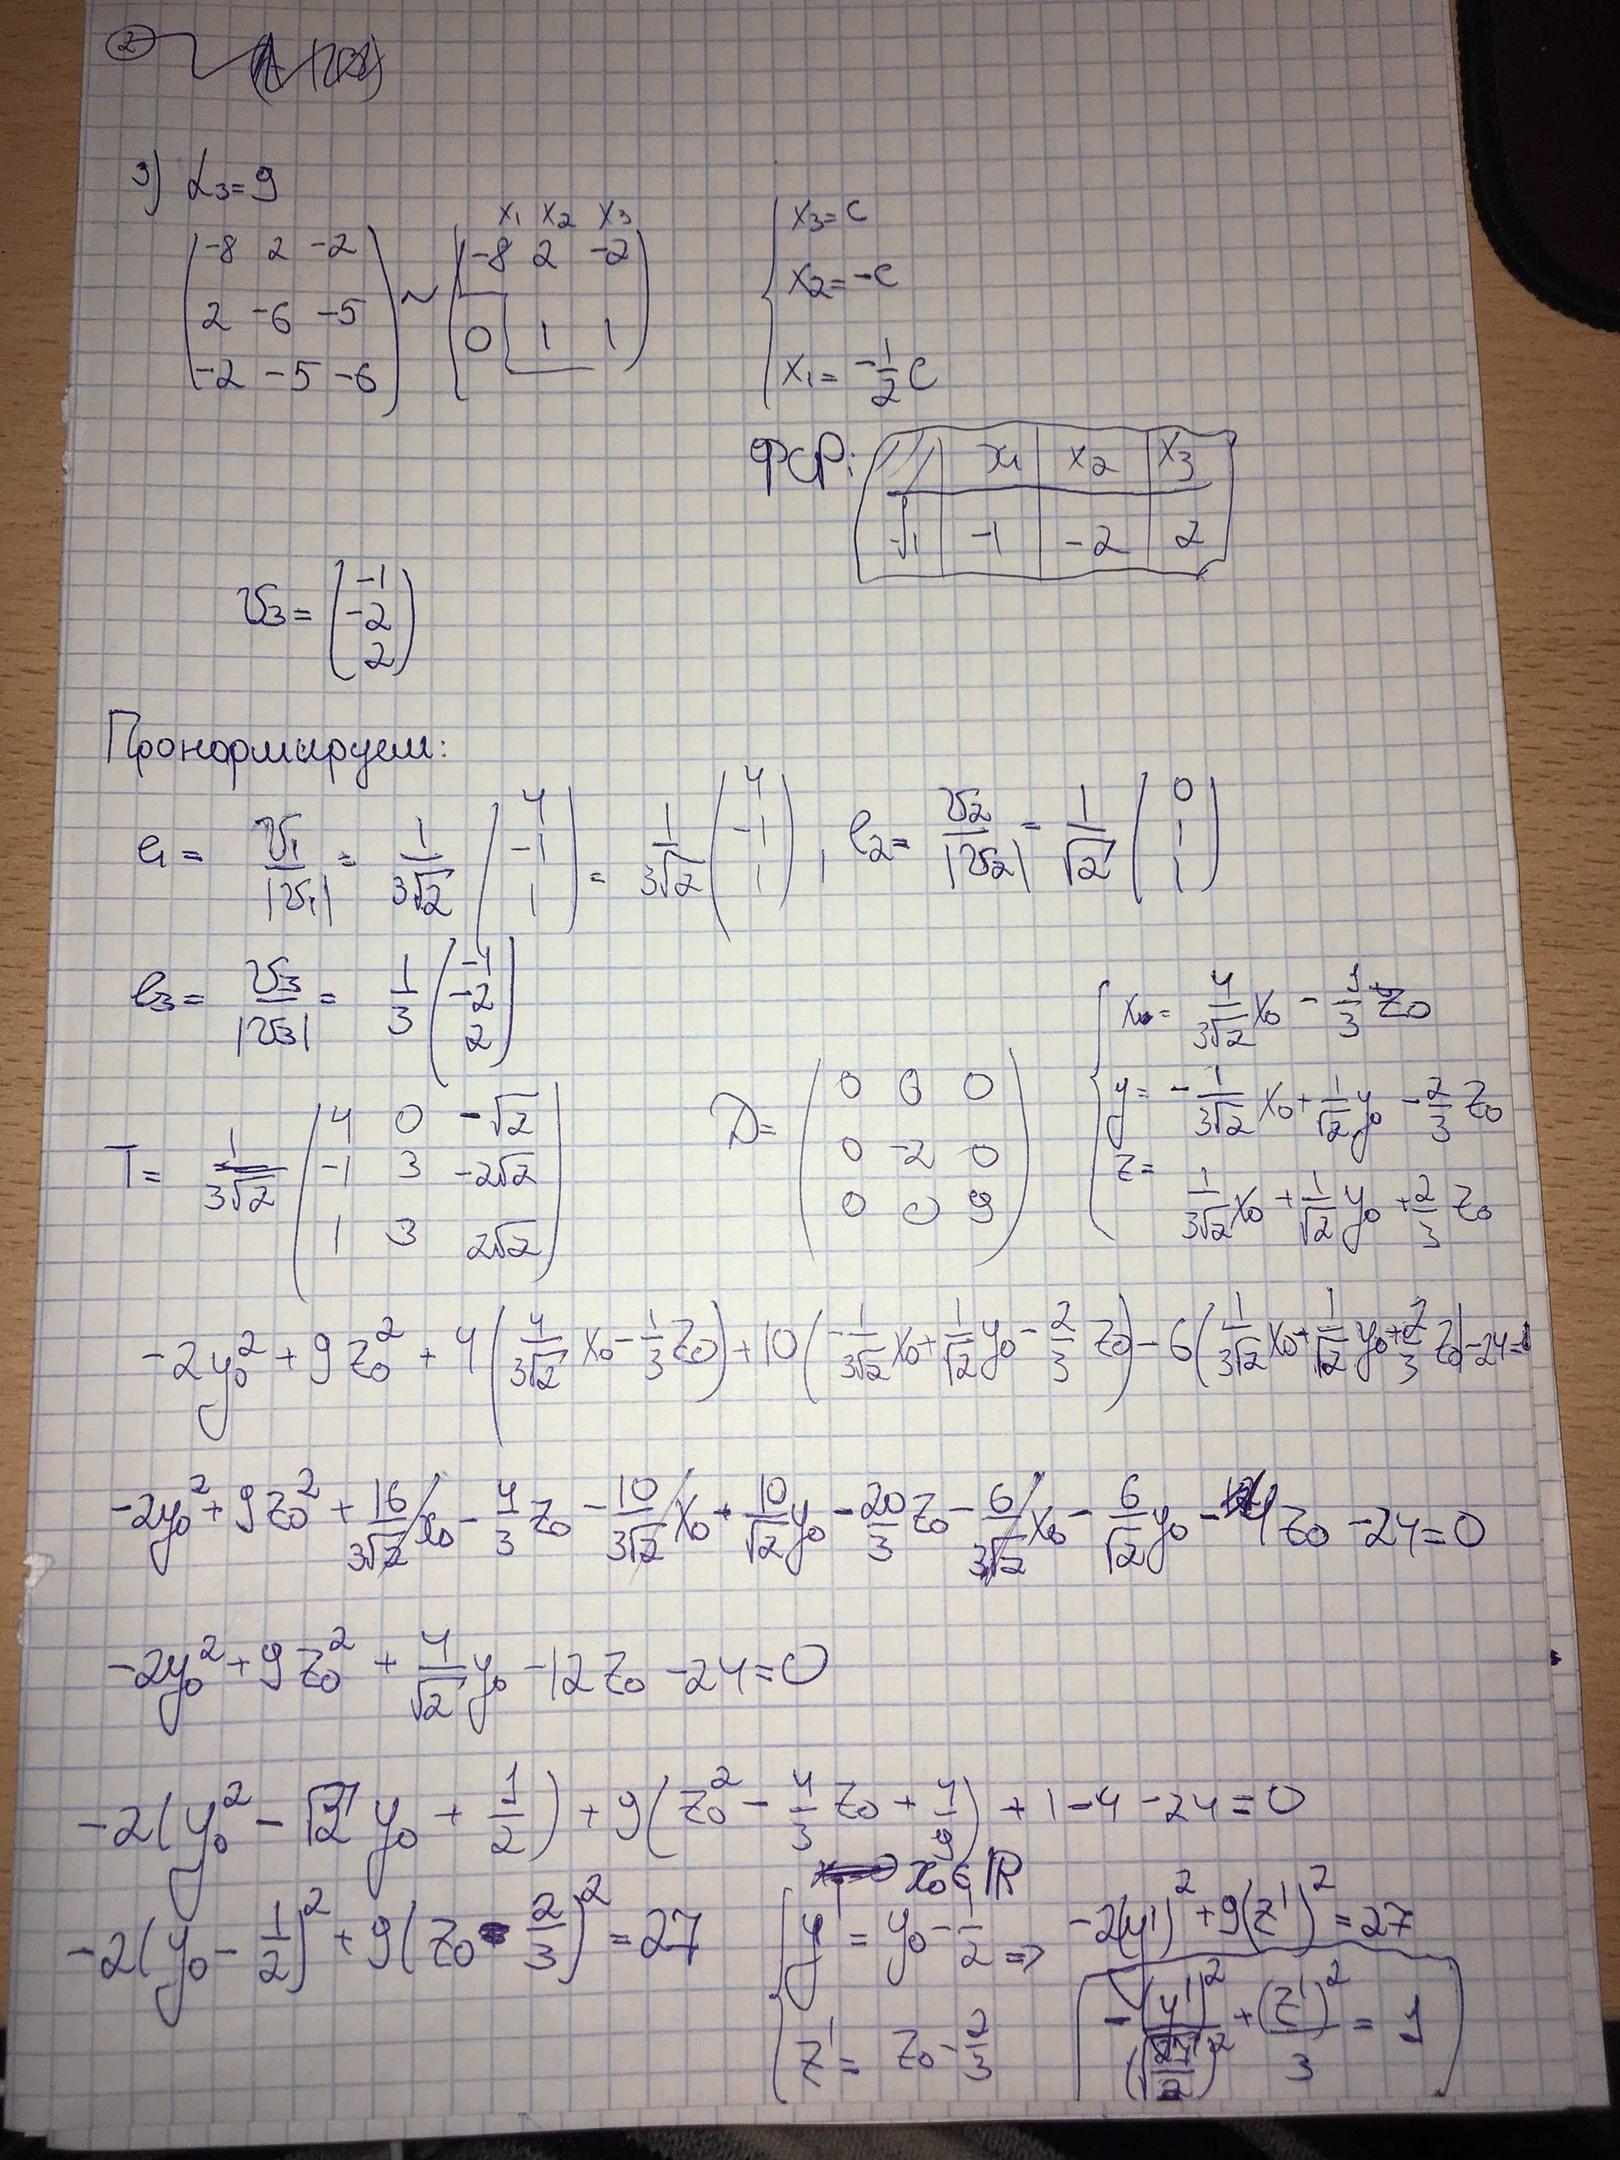 ②
3) λ₃=9
(-8 2 -2; 2 -6 -5; -2 -5 -6) ~ (x₁ x₂ x₃; -8 2 -2; 0 1 1)
{ x₃=c
x₂=-c
x₁=-1/2 c
ФСР: | x₁ | x₂ | x₃
v₁ | -1 | -2 | 2
v₃= (-1; -2; 2)
Пронормируем:
e₁= v₁/|v₁| = 1/(3√2) (4; -1; 1) = 1/(3√2) (4; -1; 1), e₂= v₂/|v₂| = 1/√2 (0; 1; 1)
e₃= v₃/|v₃| = 1/3 (-1; -2; 2)
T= 1/(3√2) (4 0 -√2; -1 3 -2√2; 1 3 2√2) D= (0 0 0; 0 -2 0; 0 0 9)
{ x= 4/(3√2) x₀ - 1/3 z₀
y= -1/(3√2) x₀ + 1/√2 y₀ - 2/3 z₀
z= 1/(3√2) x₀ + 1/√2 y₀ + 2/3 z₀
-2y₀² + 9z₀² + 4(4/(3√2) x₀ - 1/3 z₀) + 10(-1/(3√2) x₀ + 1/√2 y₀ - 2/3 z₀) - 6(1/(3√2) x₀ + 1/√2 y₀ + 2/3 z₀) - 24=0
-2y₀² + 9z₀² + 16/(3√2) x₀ - 4/3 z₀ - 10/(3√2) x₀ + 10/√2 y₀ - 20/3 z₀ - 6/(3√2) x₀ - 6/√2 y₀ - 4z₀ - 24=0
-2y₀² + 9z₀² + 4/√2 y₀ - 12z₀ - 24=0
-2(y₀² - √2 y₀ + 1/2) + 9(z₀² - 4/3 z₀ + 4/9) + 1 - 4 - 24=0
x₀∈ℝ
-2(y₀ - 1/2)² + 9(z₀ - 2/3)² = 27
{ y' = y₀ - 1/2 => -2(y')² + 9(z')² = 27
z' = z₀ - 2/3
-(y')²/(√(27/2))² + (z')²/3 = 1